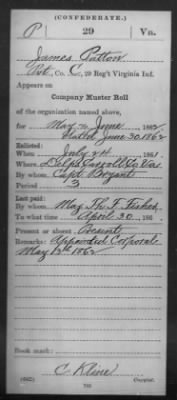 (CONFEDERATE.)
P 29 Va.
James Patton
Pvt, Co. C, 29 Reg't Virginia Inf.
Appears on
Company Muster Roll
of the organization named above,
for May & June, 1862
dated June 30, 1862
Enlisted:
When July 24, 1861
Where Carroll Co Va
By whom Capt Bryant
Period 3
Last paid:
By whom Maj Th. F. Fisher
To what time April 30, 186
Present or absent Present
Remarks: Appointed Corporal
May 1862
Book mark:
C. Kline
(642) Copyist.